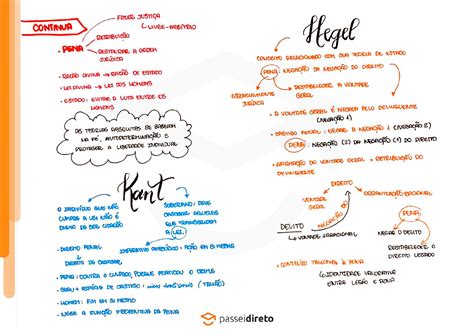 CONTINUA
FAZER JUSTIÇA
↳ LIVRE-ARBÍTRIO
• PENA
RETRIBUIÇÃO
RESTAURAR A ORDEM
JURÍDICA
• RAZÃO DIVINA → RAZÃO DE ESTADO
• LEI DIVINA → LEI DOS HOMENS
• ESTADO: EVITAR A LUTA ENTRE OS
HOMENS
AS TEORIAS ABSOLUTAS SE BASEIAM
NA FÉ, AUTODETERMINAÇÃO E
PROTEGER A LIBERDADE INDIVIDUAL
Kant
O INDIVÍDUO QUE NÃO
CUMPRE A LEI NÃO É
DIGNO DA
SOBERANO: DEVE
CASTIGAR AQUELES
QUE TRANSGREDIRAM
A LEI.
• DIREITO PENAL
↳ DIREITO DE CASTIGAR
IMPERATIVO CATEGÓRICO: AÇÃO EM SI MESMA
• PENA: CONTRA O CULPADO, PORQUE PRATICOU O CRIME
• GRAU + ESPÉCIE DE CASTIGO: (TALIÃO)
• HOMEM: FIM EM SI MESMO
• NEGA A FUNÇÃO PREVENTIVA DA PENA
Hegel
CONCEITO RELACIONADO COM SUA TEORIA DE ESTADO
PENA: NEGAÇÃO DA NEGAÇÃO DO DIREITO
JURÍDICA
RESTABELECER A VONTADE
GERAL
• A VONTADE GERAL É NEGADA PELO DELINQUENTE
(NEGAÇÃO 1)
• CASTIGO PENAL: NEGAR A NEGAÇÃO 1 (NEGAÇÃO 2)
PENA: NEGAÇÃO (2) DA NEGAÇÃO (1) DO DIREITO
• AFIRMAÇÃO DA VONTADE GERAL + RETRIBUIÇÃO DO
DELINQUENTE
DIREITO
VONTADE
GERAL
ORGANIZAÇÃO RACIONAL
DELITO
↳ VONTADE IRRACIONAL
NEGAÇÃO DO
PENA
NEGAR O DELITO
RESTABELECER O
DIREITO LESADO
• CONTEÚDO TALIONAL À PENA
↳ IDENTIDADE VALORATIVA
ENTRE LESÃO E PENA
passeidireto